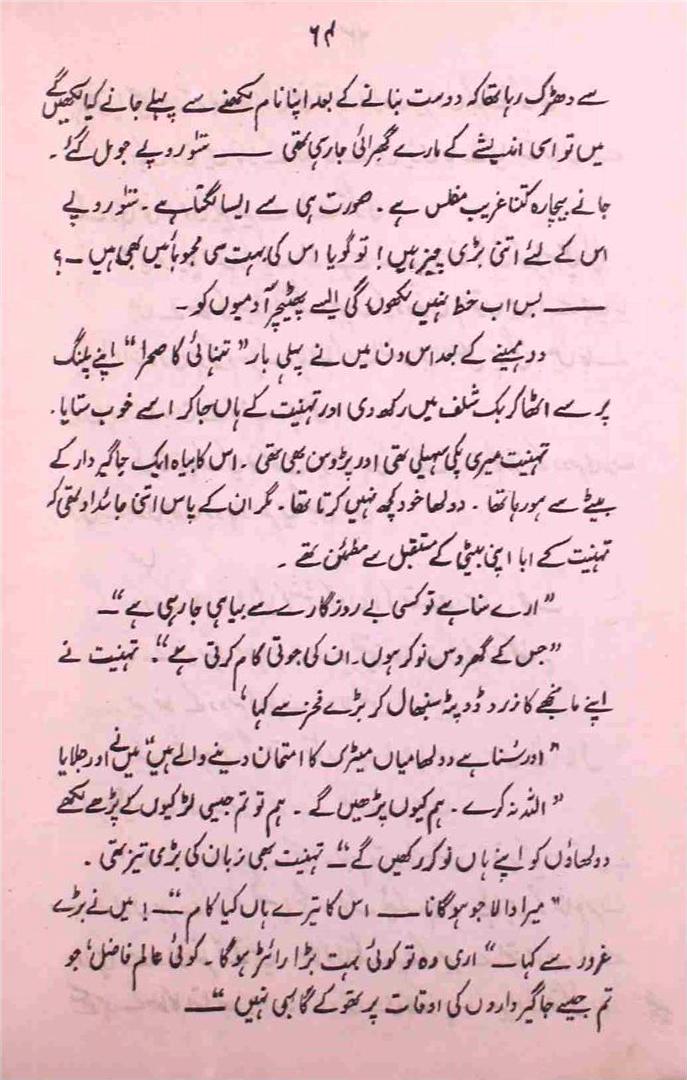 ۶۴
سے دھڑک رہا تھا کہ دوست بنانے کے بعد اپنا نام لکھنے سے پہلے جانے کیا لکھیں گے
میں تو اسی اندیشے کے مارے گھبرائی جارہی تھی ــــــ سنوّ روپے جو مل گئے۔
جانے بیچارہ کتنا غریب مفلس ہے۔ صورت ہی سے ایسا لگتا ہے۔ سنوّ روپے
اس کے لئے اتنی بڑی چیز ہیں! تو گویا اس کی بہت سی محبوبائیں بھی ہیں ــ؟
ــــــ بس اب خط نہیں لکھوں گی ایسے پھٹیچر آدمیوں کو ــ
دو مہینے کے بعد اس دن میں نے پہلی بار "تنہائی کا صحرا" اپنے پلنگ
پر سے اٹھا کر بک شلف میں رکھ دی اور تہنیت کے ہاں جاکر اسے خوب ستایا۔
تہنیت میری پکی سہیلی تھی اور پڑوسن بھی تھی۔ اس کا بیاہ ایک جاگیردار کے
بیٹے سے ہو رہا تھا۔ دولھا خود کچھ نہیں کرتا تھا۔ مگر ان کے پاس اتنی جائداد تھی کہ
تہنیت کے ابا اپنی بیٹی کے مستقبل سے مطمئن تھے۔
"ارے سنا ہے تو کسی بے روزگار سے بیاہی جارہی ہے"ــ
"جس کے گھر دس نوکر ہوں۔ ان کی جوتی کام کرتی ہے"۔ تہنیت نے
اپنے مانجھے کا زرد ڈوپٹہ سنبھال کر بڑے فخر سے کہا،
"اور سُنا ہے دولھا میاں میٹرک کا امتحان دینے والے ہیں" میں نے اور جلایا
"اللہ نہ کرے۔ ہم کیوں پڑھیں گے۔ ہم تو تم جیسی لڑکیوں کے پڑھے لکھے
دولھاؤں کو اپنے ہاں نوکر رکھیں گے"ــ تہنیت بھی زبان کی بڑی تیز تھی۔
"میرا دالا جو ہوگا نا ــــ اس کا تیرے ہاں کیا کام"ــ! میں نے بڑے
غرور سے کہا ــ "اری وہ تو کوئی بہت بڑا رائٹر ہوگا۔ کوئی عالم فاضل، جو
تم جیسے جاگیرداروں کی اوقات پر تھوکے گا بھی نہیں"ــــ